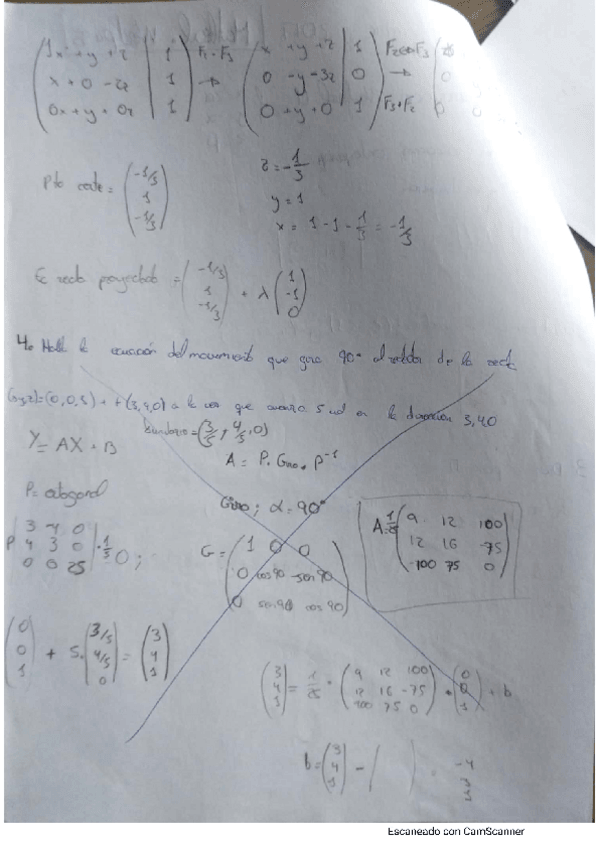 (1x + y + z | 1) F₁ - F₃ (x + y + z | 1) F₂↔F₃
(x + 0 - 2z | 1) → (0 - y - 3z | 0) →
(0x + y + 0z | 1) (0 + y + 0 | 1) F₃+F₂
Pto corte = (-1/3, 1, -1/3)
z = -1/3
y = 1
x = 1 - 1 - 1/3 = -1/3
Ec recta proyectada = (-1/3, 1, -1/3) + λ (1, -1, 0)
4. Halla la ecuación del movimiento que gira 90° alrededor de la recta
(x,y,z)=(0,0,5)+ t(3,4,0) a la vez que avanza 5 ud en la dirección 3,40
= (3/5, 4/5, 0)
Y = AX + B
A = P · Giro · P⁻¹
P = ortogonal
Giro; α = 90°
P |3 -4 0; 4 3 0; 0 0 25| · 1/5
G = (1 0 0; 0 cos90 -sen90; 0 sen90 cos90)
A = 1/25 (9 12 100; 12 16 -75; -100 75 0)
(0, 0, 1) + 5· (3/5, 4/5, 0) = (3, 4, 1)
(3, 4, 1) = 1/25 · (9 12 100; 12 16 -75; 100 75 0) · (0, 0, 1) + b
b = (3, 4, 1) - ( ) =
Escaneado con CamScanner